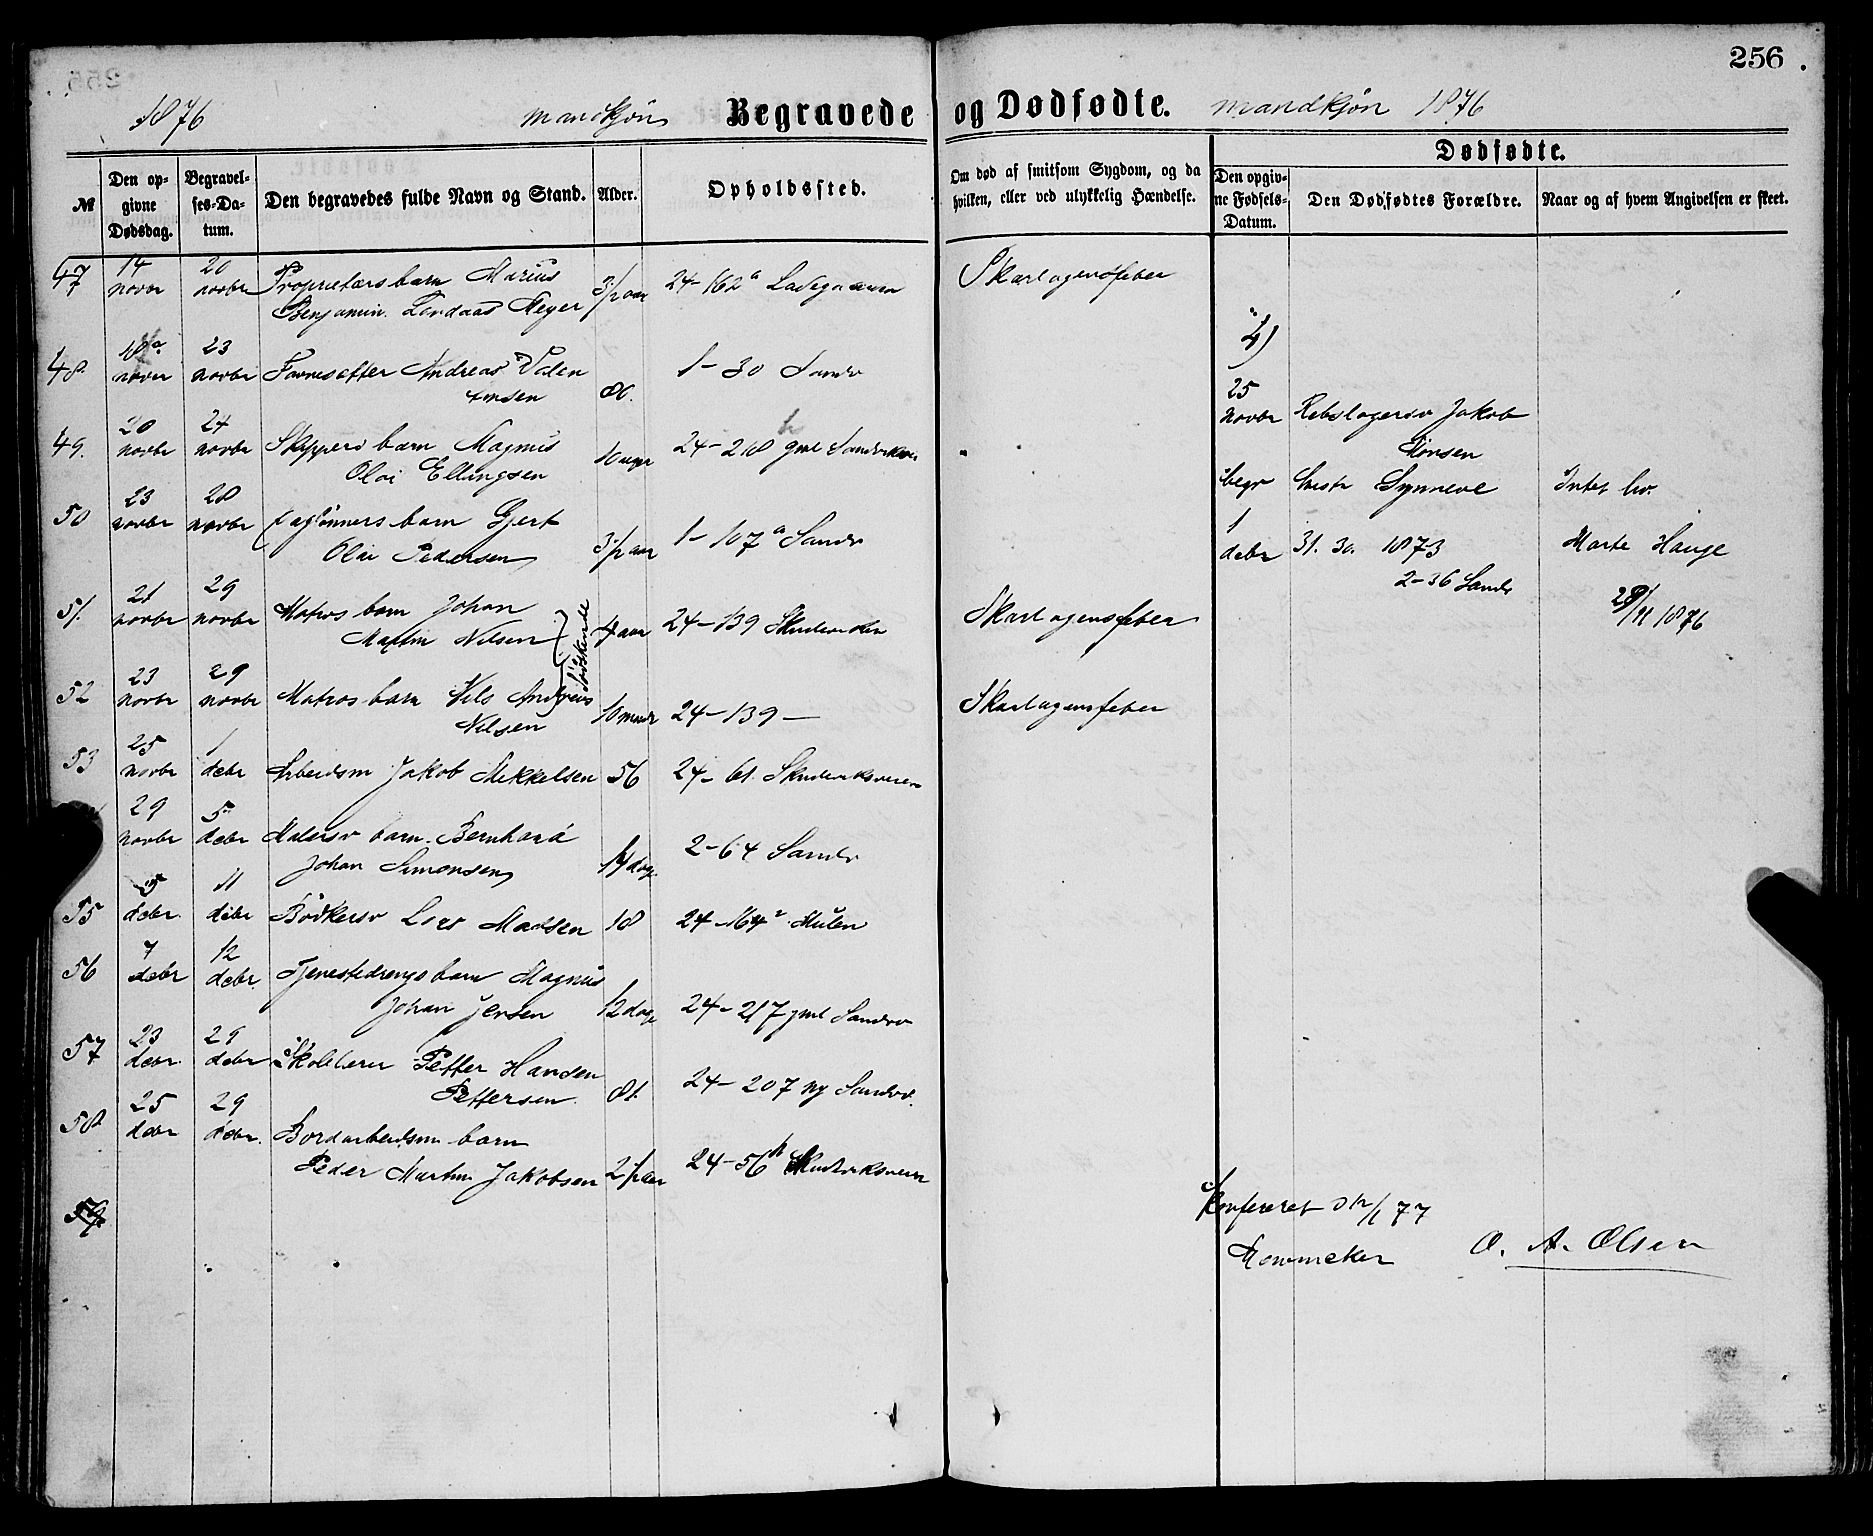 256.
1876 mandkjøn Begravede og Dødfødte. mandkjøn 1876
№
Den opgivne Dødsdag.
Begravelses-Datum.
Den begravedes fulde Navn og Stand.
Alder.
Opholdssted.
Om død af smitsom Sygdom, og da hvilken, eller ved ulykkelig Hændelse.
Dødfødte.
Den opgivne Fødsels-Datum.
Den Dødfødtes Forældre.
Naar og af hvem Angivelsen er skeet.
47 14 novbr 20 novbr Proprietærs barn Marius
Benjamin Meyer 24-162a Ladegaarn Skarlagensfeber
48 novbr 23 novbr Andreas Valen
tinsen 80. 1-30 Sandv
49. 20 novbr 24 novbr Skippers barn Magnus
Olai Ellingsen 10 uger 24-218 gml Sandvikvei
50 23 novbr 28 novbr Daglønners barn Gjert
Olai Pedersen 3 1/2 aar 1-107a Sandv
51. 21 novbr 29 novbr Matros barn Johan
Martin Nilsen 4 aar 24-139 Skudeviken Skarlagensfeber
Sødskende
52 23 novbr 29 novbr Matros barn Nils Andreas
Nilsen 10 mndr 24-139 — Skarlagensfeber
53 25 novbr 1 debr Arbeidsm Jakob Mikkelsen 56 24-61. Skudeviksveien
29 novbr 5 debr Malersv barn. Bernhard
Johan Simonsen 14 dage 2-64 Sandv
55 5 debr. 11 debr Bødkersv Lars Madsen 18 24-164a Mulen
56 7 debr 12 debr Tjenestedrengs barn Magnus
Johan Jensen 12 dage 24-217 gml Sandvv
57 23 debr. 29 debr Skolelærer Petter Hansen
Pettersen 81. 24-207 ny Sandvv.
58 25 debr 29 debr. Bordarbeidsm barn
Peder Martin Jakobsen 2 1/2 aar 24-56b Skudeviksveien
59
4)
25
novbr Rebslagersv Jakob
Monsen
begr Synneve Intet liv.
1
debr 31. 30. 1873 Marte Hauge
2-36 Sandv 28/11 1876
Konfereret d 12/1 77
O. A. Olsen